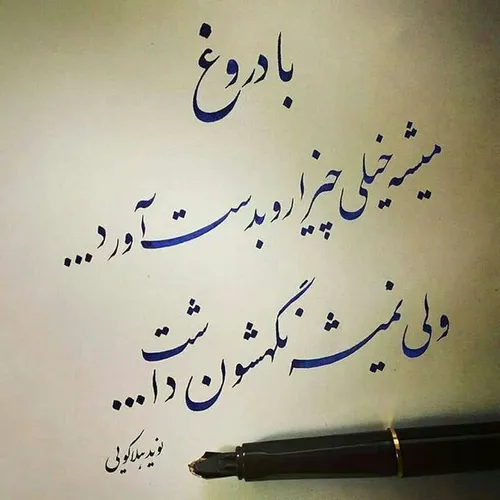 با دروغ
میشه خیلی چیزارو بدست آورد...
ولی نمیشه نگهشون داشت...
نوید هلاکویی